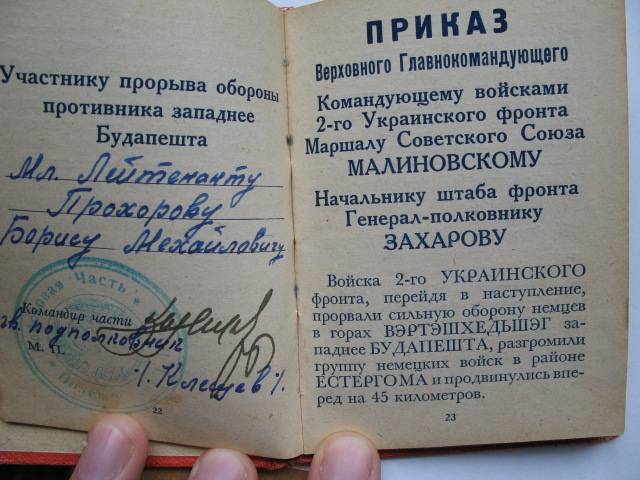 Участнику прорыва обороны
противника западнее
Будапешта
Мл. Лейтенанту
Прохорову
Борису Мехайловичу
Командир части
гв. подполковник
М. П.
/. Клещев /.
22
ПРИКАЗ
Верховного Главнокомандующего
Командующему войсками
2-го Украинского фронта
Маршалу Советского Союза
МАЛИНОВСКОМУ
Начальнику штаба фронта
Генерал-полковнику
ЗАХАРОВУ
Войска 2-го УКРАИНСКОГО
фронта, перейдя в наступление,
прорвали сильную оборону немцев
в горах ВЭРТЭШХЕДЬШЭГ за-
паднее БУДАПЕШТА, разгромили
группу немецких войск в районе
ЕСТЕРГОМА и продвинулись впе-
ред на 45 километров.
23